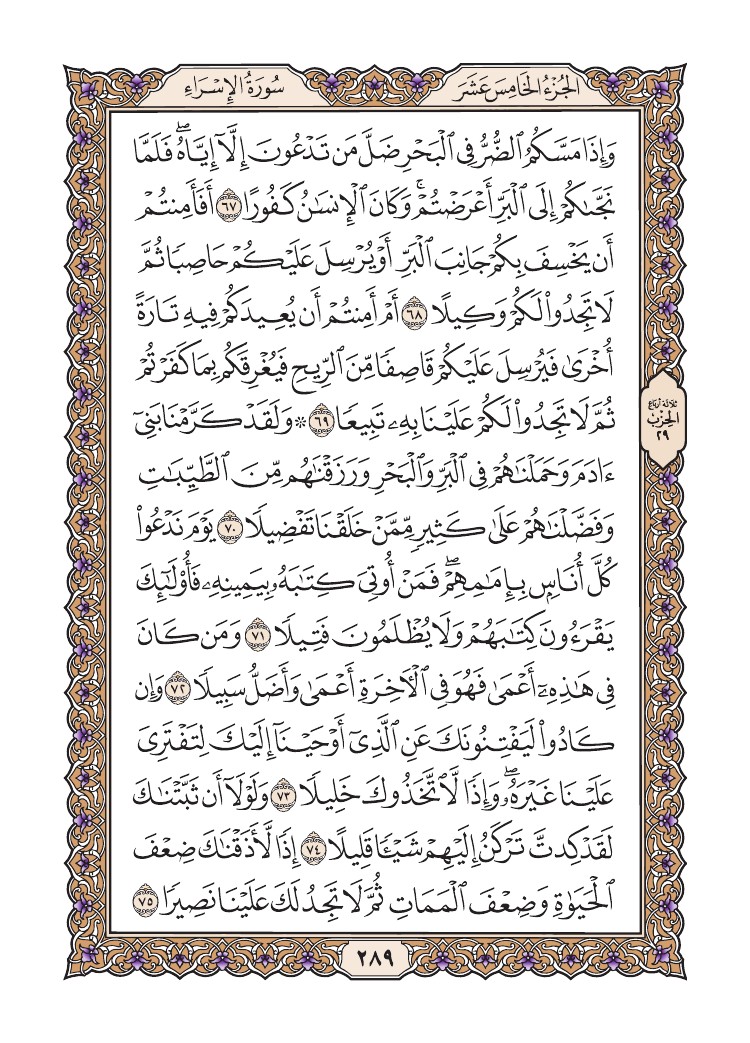 الجزء الخامس عشر
سورة الإسراء
وَإِذَا مَسَّكُمُ ٱلضُّرُّ فِي ٱلْبَحْرِ ضَلَّ مَن تَدْعُونَ إِلَّآ إِيَّاهُۖ فَلَمَّا
نَجَّىٰكُمْ إِلَى ٱلْبَرِّ أَعْرَضْتُمْۚ وَكَانَ ٱلْإِنسَٰنُ كَفُورًا ٦٧ أَفَأَمِنتُمْ
أَن يَخْسِفَ بِكُمْ جَانِبَ ٱلْبَرِّ أَوْ يُرْسِلَ عَلَيْكُمْ حَاصِبًا ثُمَّ
لَا تَجِدُوا۟ لَكُمْ وَكِيلًا ٦٨ أَمْ أَمِنتُمْ أَن يُعِيدَكُمْ فِيهِ تَارَةً
أُخْرَىٰ فَيُرْسِلَ عَلَيْكُمْ قَاصِفًا مِّنَ ٱلرِّيحِ فَيُغْرِقَكُم بِمَا كَفَرْتُمْ
ثُمَّ لَا تَجِدُوا۟ لَكُمْ عَلَيْنَا بِهِۦ تَبِيعًا ٦٩ ۞ وَلَقَدْ كَرَّمْنَا بَنِيٓ
ءَادَمَ وَحَمَلْنَٰهُمْ فِي ٱلْبَرِّ وَٱلْبَحْرِ وَرَزَقْنَٰهُم مِّنَ ٱلطَّيِّبَٰتِ
وَفَضَّلْنَٰهُمْ عَلَىٰ كَثِيرٍ مِّمَّنْ خَلَقْنَا تَفْضِيلًا ٧٠ يَوْمَ نَدْعُوا۟
كُلَّ أُنَاسٍۭ بِإِمَٰمِهِمْۖ فَمَنْ أُوتِيَ كِتَٰبَهُۥ بِيَمِينِهِۦ فَأُو۟لَٰٓئِكَ
يَقْرَءُونَ كِتَٰبَهُمْ وَلَا يُظْلَمُونَ فَتِيلًا ٧١ وَمَن كَانَ
فِي هَٰذِهِۦٓ أَعْمَىٰ فَهُوَ فِي ٱلْأٓخِرَةِ أَعْمَىٰ وَأَضَلُّ سَبِيلًا ٧٢ وَإِن
كَادُوا۟ لَيَفْتِنُونَكَ عَنِ ٱلَّذِيٓ أَوْحَيْنَآ إِلَيْكَ لِتَفْتَرِيَ
عَلَيْنَا غَيْرَهُۥۖ وَإِذًا لَّٱتَّخَذُوكَ خَلِيلًا ٧٣ وَلَوْلَآ أَن ثَبَّتْنَٰكَ
لَقَدْ كِدتَّ تَرْكَنُ إِلَيْهِمْ شَيْـًٔا قَلِيلًا ٧٤ إِذًا لَّأَذَقْنَٰكَ ضِعْفَ
ٱلْحَيَوٰةِ وَضِعْفَ ٱلْمَمَاتِ ثُمَّ لَا تَجِدُ لَكَ عَلَيْنَا نَصِيرًا ٧٥
ثلاثة أرباع
الحزب
٢٩
٢٨٩